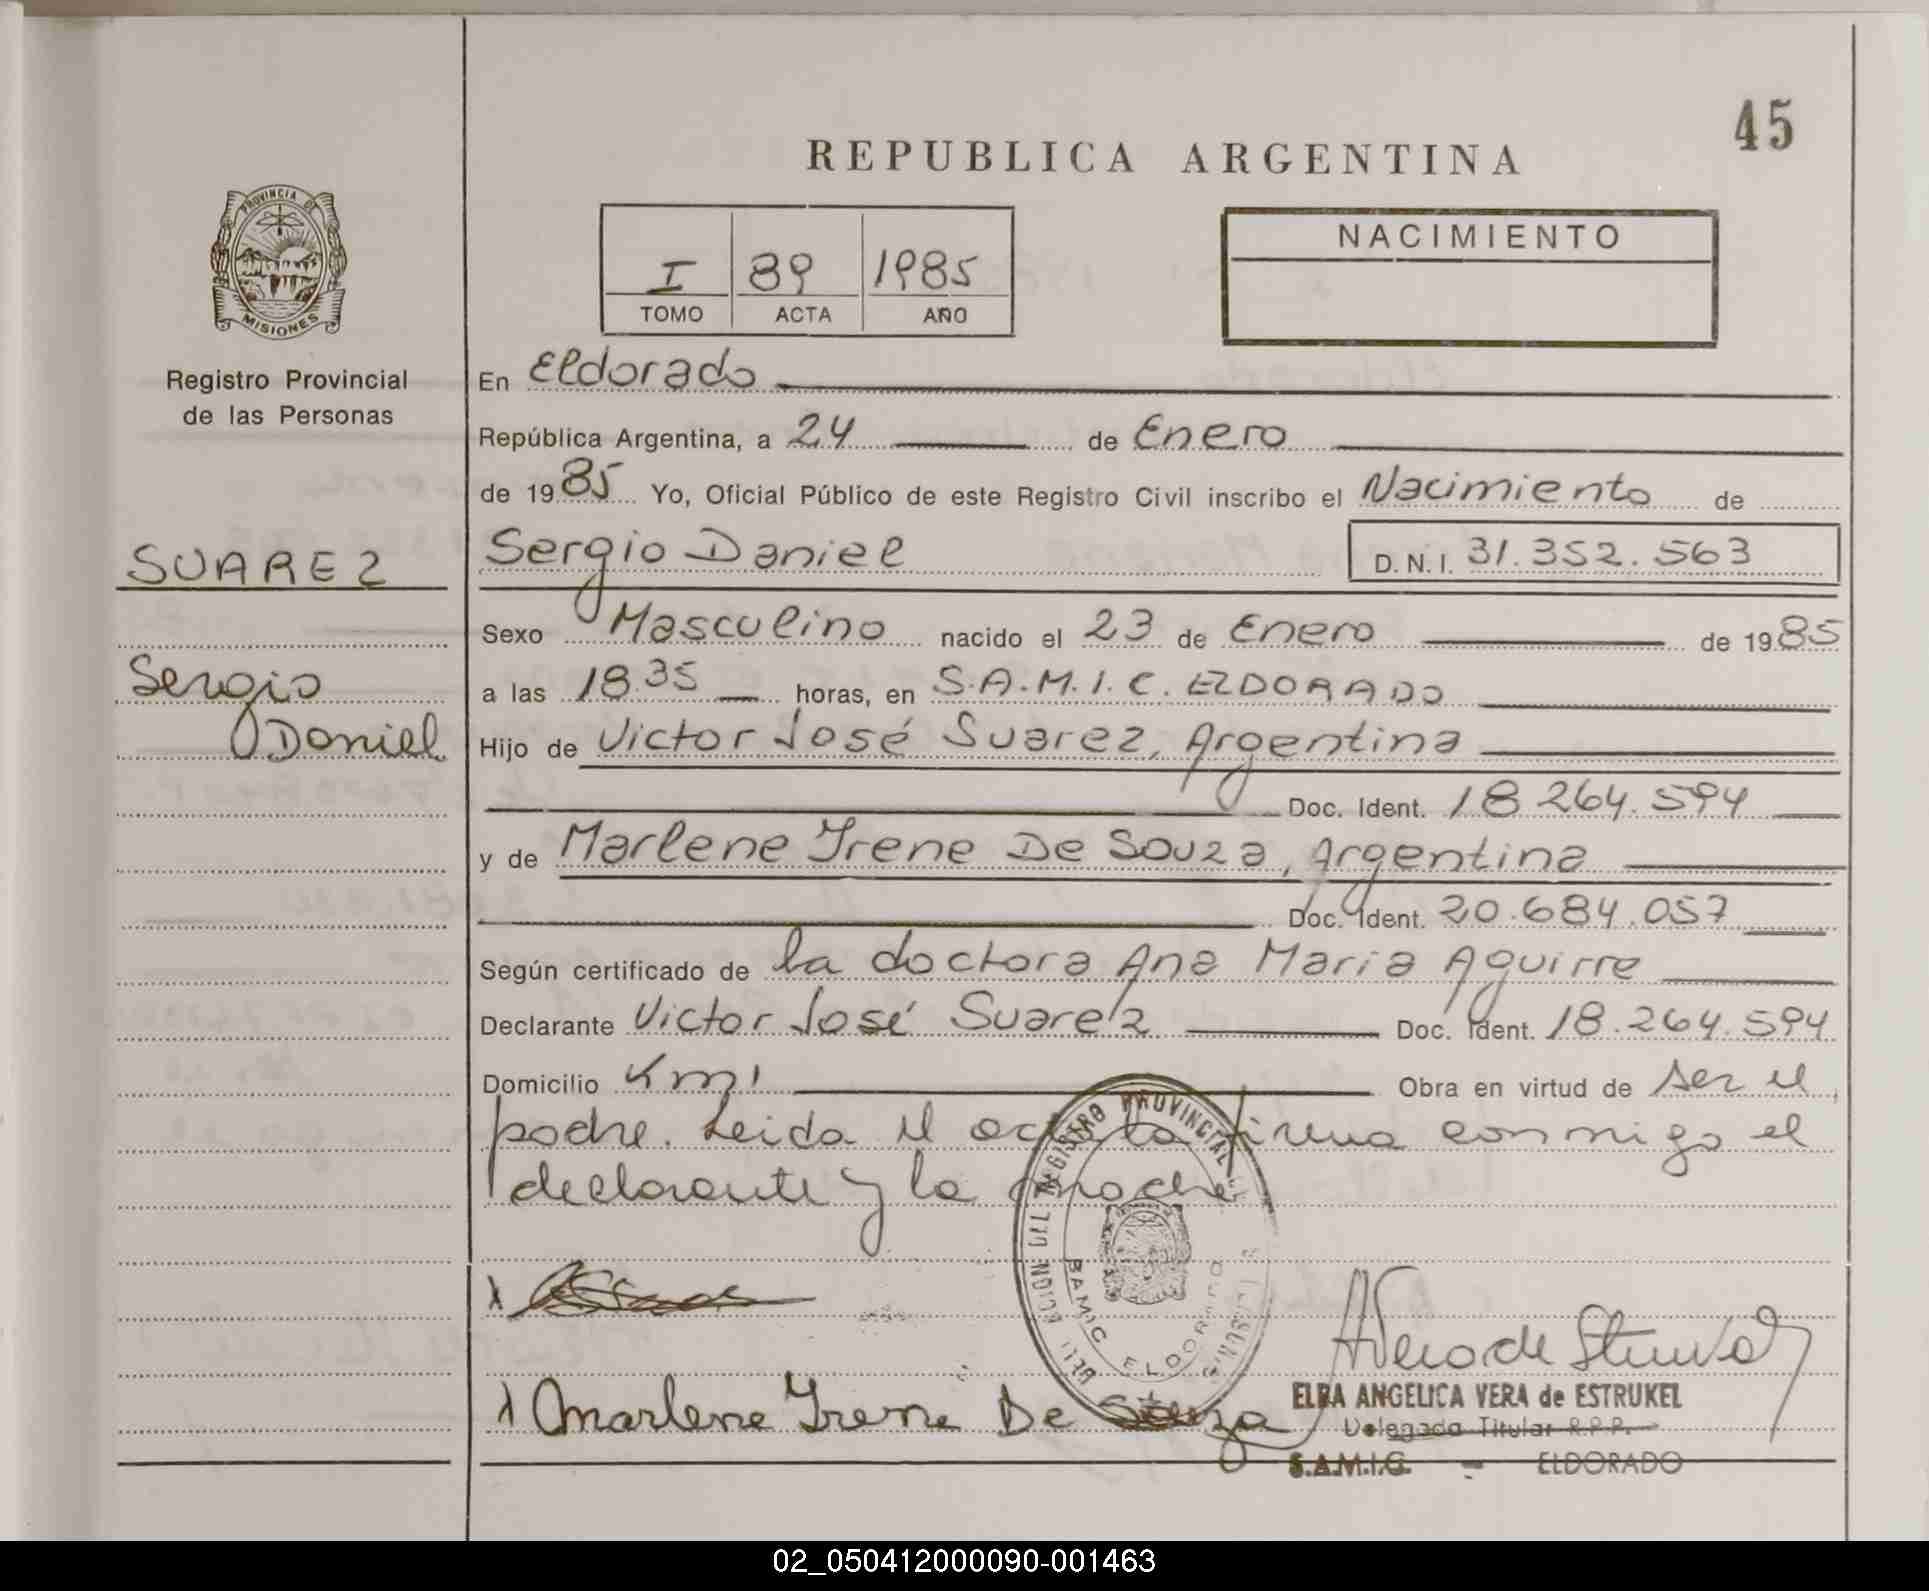 45
REPUBLICA ARGENTINA
PROVINCIA DE
MISIONES
Registro Provincial
de las Personas
I 89 1985
TOMO ACTA AÑO
NACIMIENTO
En Eldorado
República Argentina, a 24 de Enero
de 1985 Yo, Oficial Público de este Registro Civil inscribo el Nacimiento de
SUAREZ
Sergio Daniel D.N.I. 31.352.563
Sexo Masculino nacido el 23 de Enero de 1985
Sergio
Daniel
a las 18.35 horas, en S.A.M.I.C. ELDORADO
Hijo de Victor José Suarez, Argentina
Doc. Ident. 18.264.594
y de Marlene Irene De Souza, Argentina
Doc. Ident. 20.684.057
Según certificado de la doctora Ana Maria Aguirre
Declarante Victor José Suarez Doc. Ident. 18.264.594
Domicilio Km 1 Obra en virtud de ser el
padre. Leida el acta la firma conmigo el
declarante y la madre
DEL REGISTRO PROVINCIAL
SAMIC ELDORADO
MISIONES
X
X Marlene Irene De Souza
ELBA ANGELICA VERA de ESTRUKEL
Delegada Titular R.P.P.
S.A.M.I.C. - ELDORADO
02_050412000090-001463